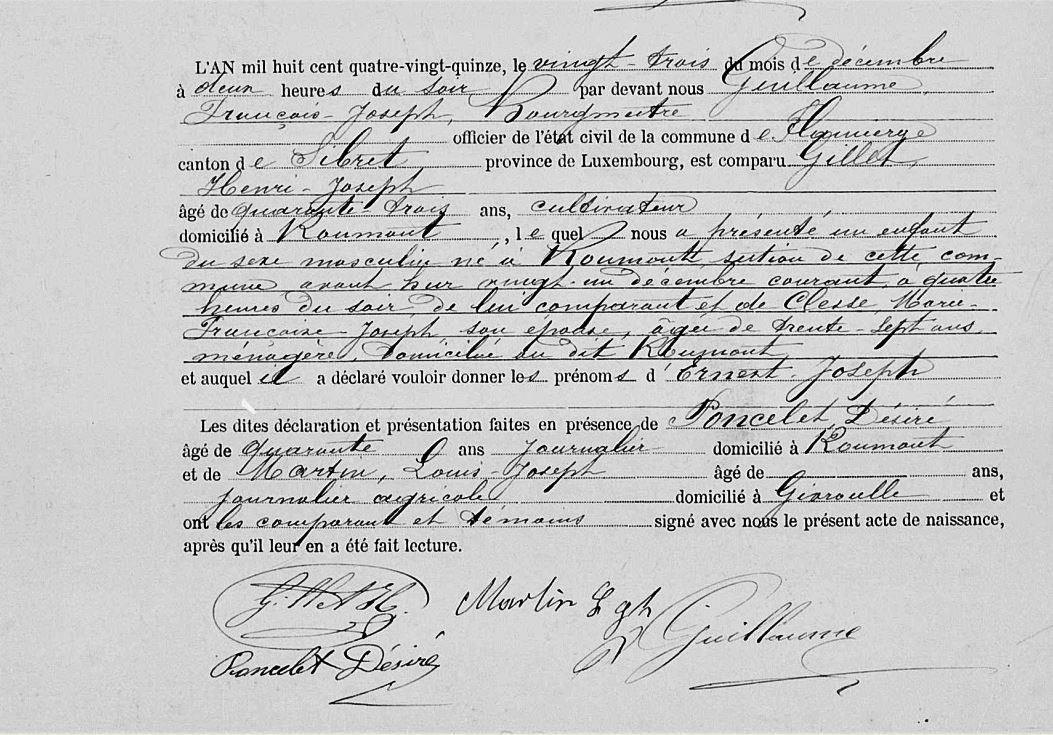 L'AN mil huit cent quatre-vingt-quinze, le vingt-trois du mois de décembre
à deux heures du soir par devant nous Guillaume,
François-Joseph, Bourgmestre
officier de l'état civil de la commune de Flamierge
canton de Sibret province de Luxembourg, est comparu Gillet,
Henri-Joseph
âgé de quarante-trois ans, cultivateur
domicilié à Roumont, lequel nous a présenté un enfant
du sexe masculin né à Roumont, section de cette com-
mune, avant hier vingt-un décembre courant, à quatre
heures du soir, de lui comparant et de Clesse, Marie-
Françoise-Joseph son épouse, âgée de trente-sept ans,
ménagère, domiciliée au dit Roumont
et auquel il a déclaré vouloir donner les prénoms d'Ernest-Joseph
Les dites déclaration et présentation faites en présence de Poncelet, Désiré
âgé de quarante ans journalier domicilié à Roumont
et de Martin, Louis-Joseph âgé de ans,
journalier agricole domicilié à Givroulle et
ont les comparant et témoins signé avec nous le présent acte de naissance,
après qu'il leur en a été fait lecture.
Gillet H. Martin L Jph
Guillaume
Poncelet Désiré